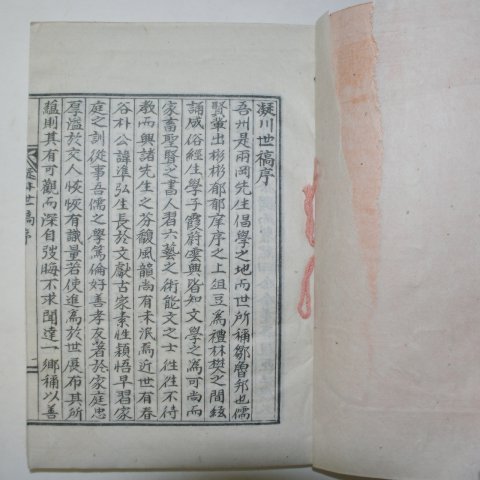 凝川世稿序
吾州是兩岡先生倡學之地而世所稱鄒魯邦也儒
賢輩出彬彬郁郁庠序之上俎豆爲禮林樊之間絃
誦成俗經生學子霞蔚雲興皆知文學之爲可尚而
家畜聖賢之書人習六藝之術能文之士徃徃不待
教而興諸先生之芬馥風韻尚有未泯焉近世有春
谷朴公諱準弘生長於文獻古家素性穎悟早習家
庭之訓從事吾儒之學篤倫好善孝友著於家庭忠
厚溢於文人恢恢有識量若使進爲於世展布其所
蘊則其有可觀而深自弢晦不求聞達一鄉稱以善
世稿序
一